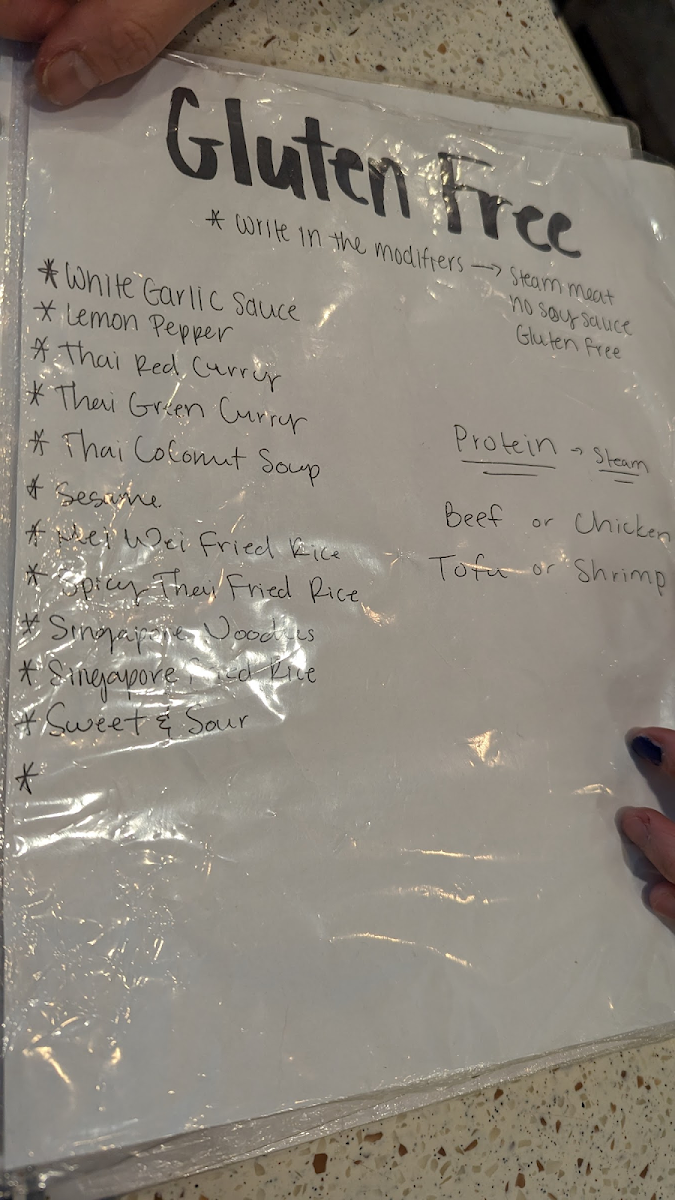 Gluten Free
* Write in the modifiers → Steam meat
no soy sauce
Gluten Free
* White Garlic Sauce
* Lemon Pepper
* Thai Red Curry
* Thai Green Curry
* Thai Coconut Soup
* Sesame
* Mei Wei Fried Rice
* Spicy Thai Fried Rice
* Singapore Noodles
* Singapore Fried Rice
* Sweet & Sour
*
Protein → Steam
Beef or Chicken
Tofu or Shrimp